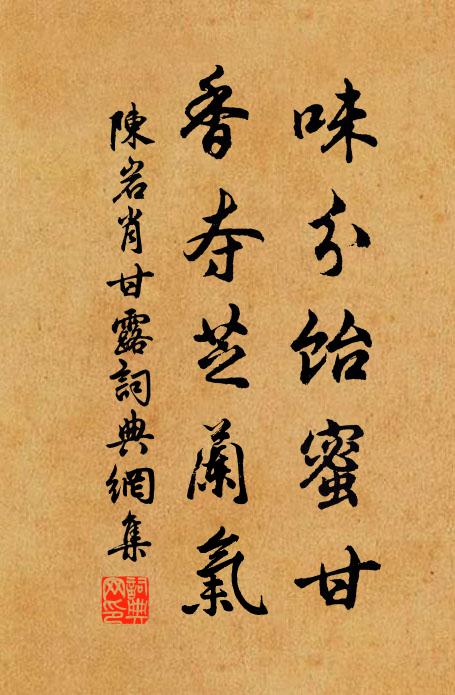 味分飴蜜甘
香夺芝蘭氣
陳岩肖甘露詞典網集
詞典网印